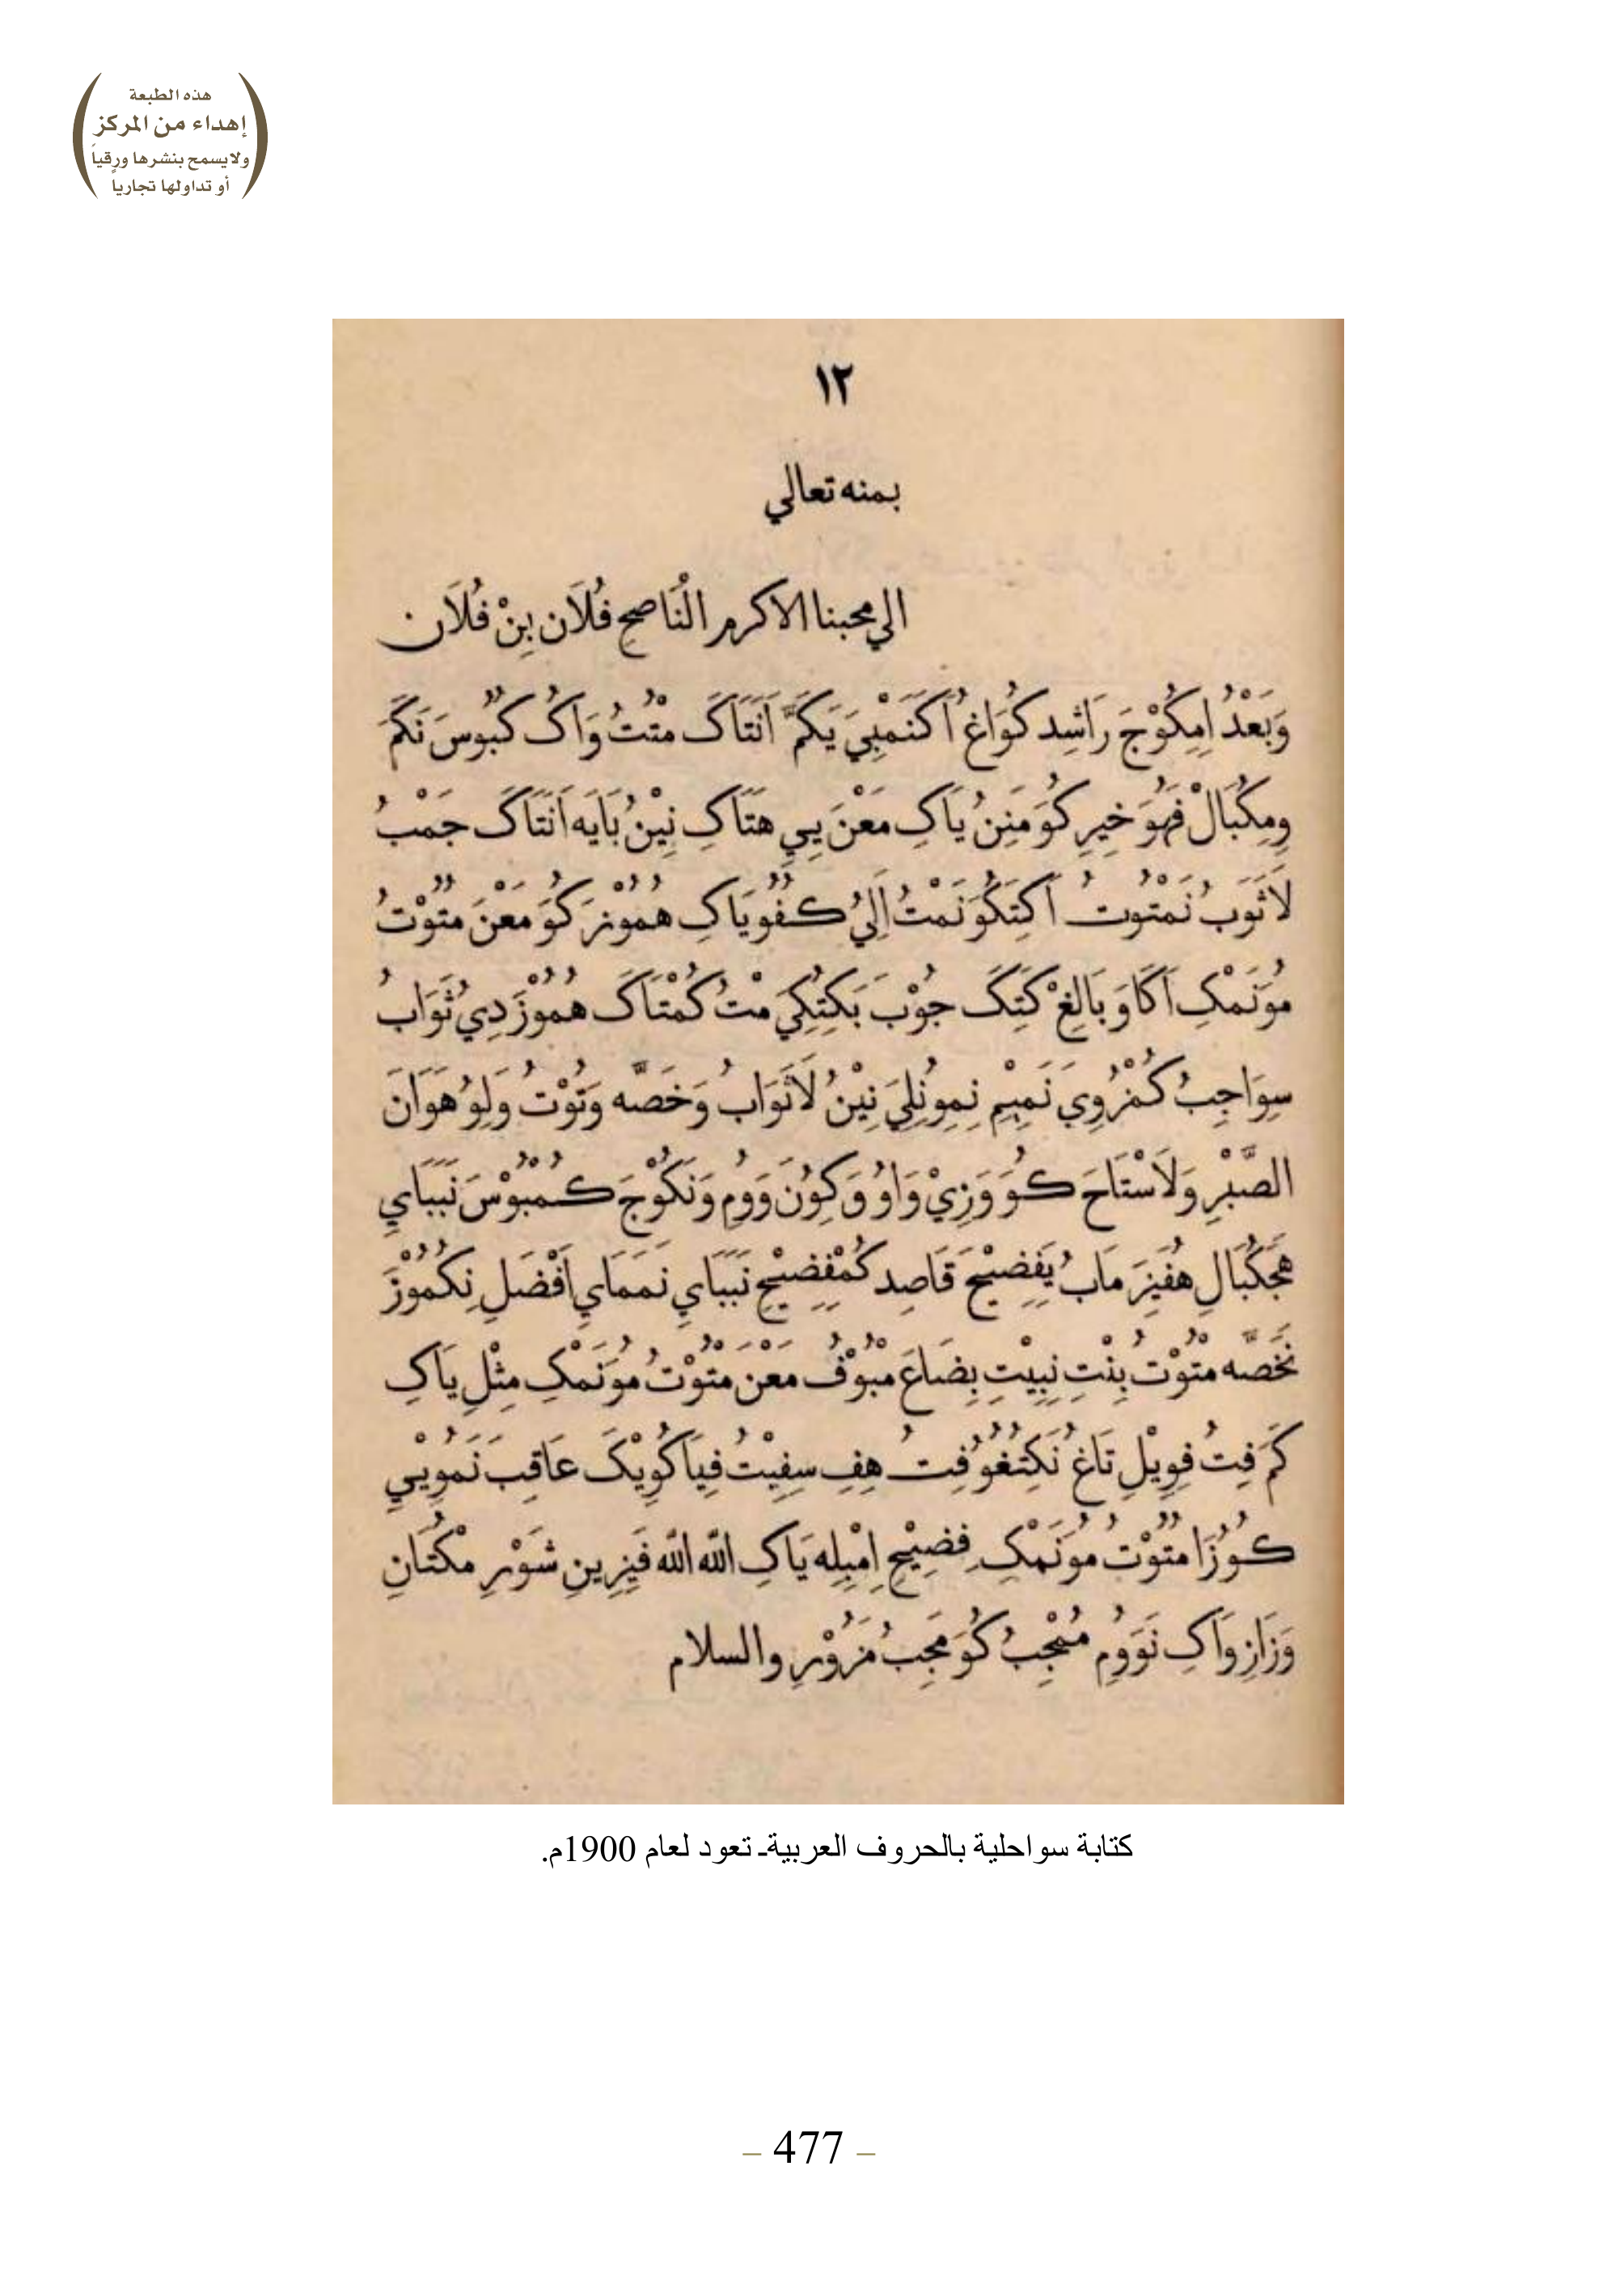 هذه الطبعة
إهداء من المركز
ولا يسمح بنشرها ورقياً
أو تداولها تجارياً
١٢
بمنه تعالي
الي محبنا الاكرم النَاصحِ فُلَان بِنْ فُلَان
وَبَعْدُ اِمِكُوْجَ رَاشِد كُوَاغُ اَكَنَمْبِيَ يَكَمَّ اَنَتَاكَ مْتُتُ وَاكُ كُبُوسَ نَكَمَ
وِمِكُبَالْ فَهُوَ خِيرِ كُوَ مَنِنُ يَاكِ مَعْنَ يِيِ هَتَاكِ نِيْنُ بَايَه اَنَتَاكَ جَمْبُ
لَا ثَوَبُ نَمْتُوتُ اَكِتَكُوَ نَمْتُ اِلِيُ كُفُوُ يَاكِ هُمُوْزَ كُوَ مَعْنَ مْتُوْتُ
مُوَنَمْكِ اَكَاوَ بَالِغْ كَتِكَ جُوْبَ بَكِتِكِيَ مْتُ كُمْتَاكَ هُمُوْزَ دِيُ ثَوَابُ
سِوَاجِبُ كُمْزُوِيَ نَمِيْمِ نِمِوُنِلِيَ نِيْنُ لَا ثَوَابُ وَخَصَّه وَتُوْتُ وَلِوُ هَوَانَ
الصَّبْرِ وَلَا سْتَاحَ كُوَ وَزِيْ وَاوُ وَكِوُنَ وَوُمِ وَنَكُوْجَ كُمْبُوْسَ نَبَبَايِ
هَجَكُبَالِ هُفَيِزَ مَابُ يَفَضِيْحَ قَاصِد كُمْفَضِيْحِ نَبَبَايِ نَمَمَايِ اَفْضَلِ نِكُمُوْزَ
نَخَصَّه مْتُوْتُ بِنْتِ نِبِيْتِ بِضَاعَ مْبُوْفُ مَعْنَ مْتُوْتُ مُوَنَمْكِ مِثْلِ يَاكِ
كَمَ فِتُ فِوِيْلِ تَاغُ نَكِتُغُوُ فِتُ هِفِ سِفِيْتُ فِيَاكُوِيْكَ عَاقِبَ نَمُوِيْيِ
كُوُزَا مْتُوْتُ مُوَنَمْكِ فِضِيْحِ اِمْبِيْلِه يَاكِ الله الله فَيِزِينِ شَوْرِ مْكُتَانِ
وَزَازِ وَاكِ نَوَوُمِ مُحِبُ كُوَ مَحِبُ مَزُوْرِ والسلام
كتابة سواحلية بالحروف العربيةـ تعود لعام 1900م.
– 477 –